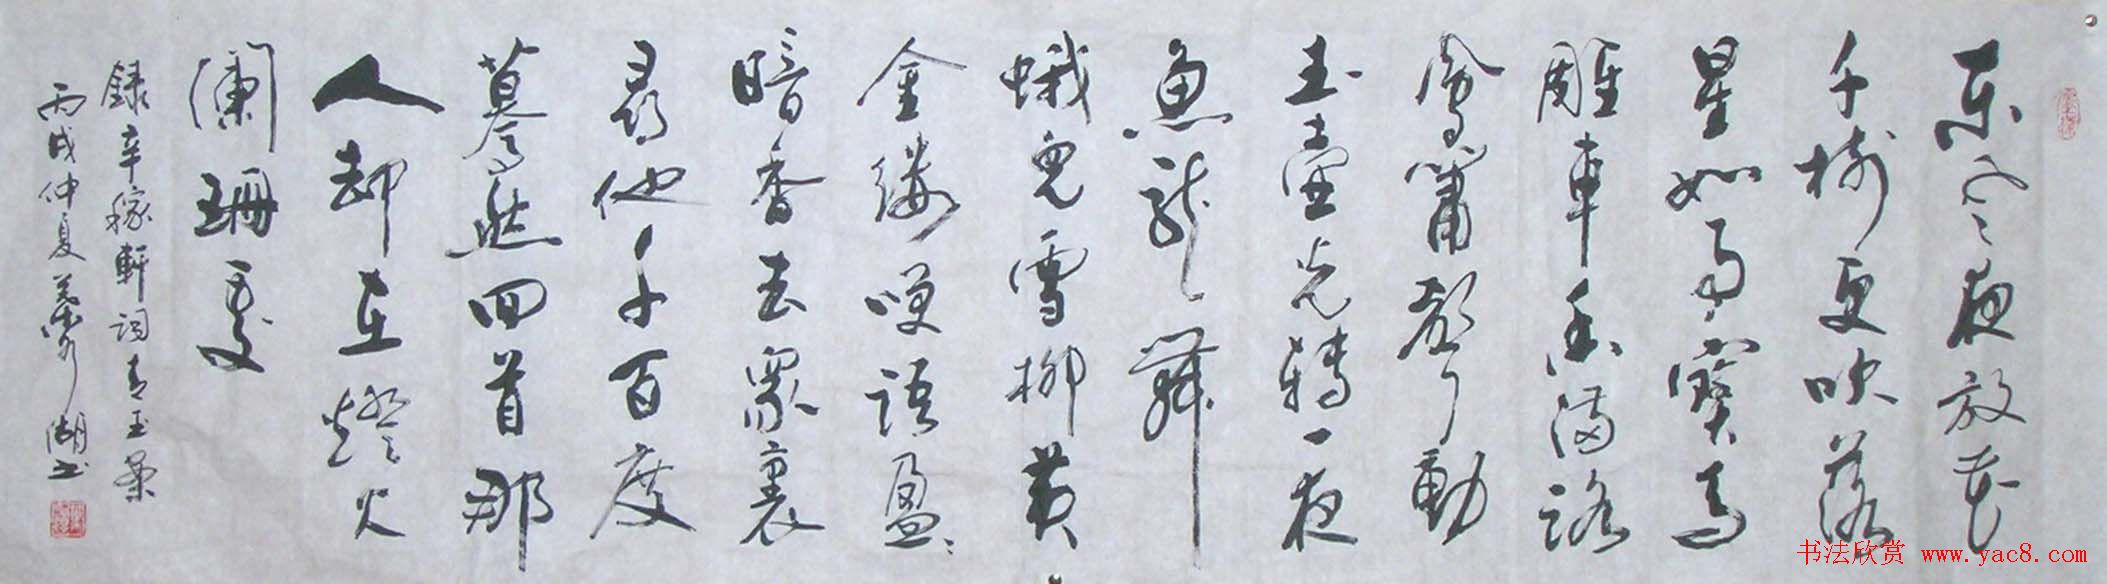 東風夜放花
千樹更吹落
星如雨寶馬
雕車香滿路
鳳簫聲動
玉壺光轉一夜
魚龍舞
蛾兒雪柳黃
金縷咲語盈盈
暗香去眾裏
尋他千百度
驀然回首那
人却在燈火
瀾珊處
錄辛稼軒詞青玉案
丙戌仲夏湖书
书法欣赏 www.yac8.com